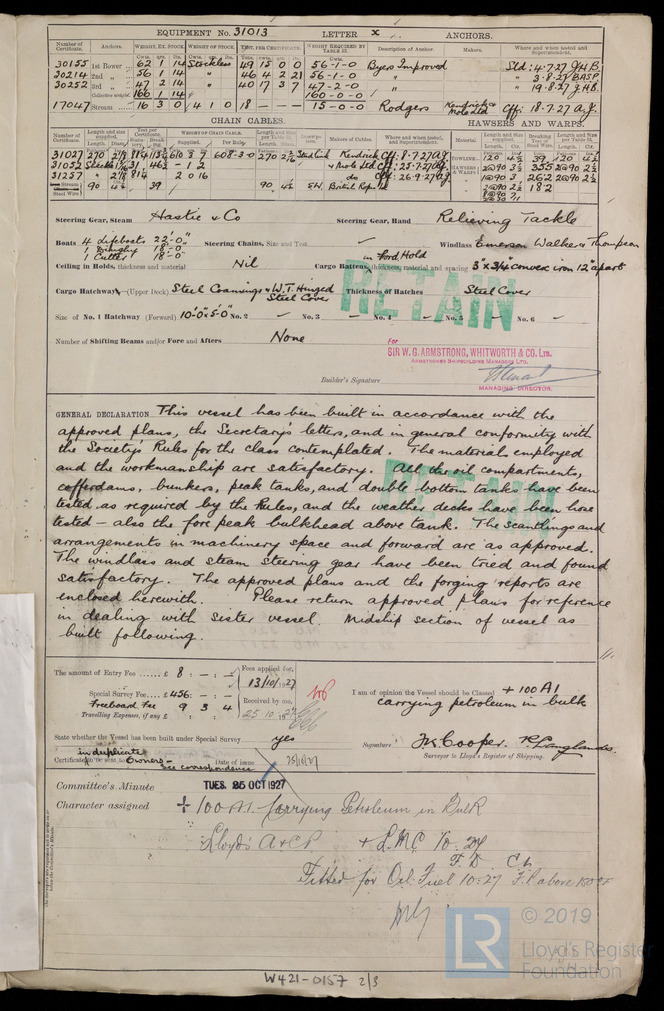 EQUIPMENT No. 31013 LETTER x ANCHORS.
Number of Certificate. Anchors. WEIGHT, EX. STOCK. WEIGHT OF STOCK. TEST, PER CERTIFICATE. WEIGHT REQUIRED BY TABLE 31. Description of Anchor. Makers. Where and when tested and Superintendent.
30155 1st Bower 62 1 14 Stockless 49 15 0 0 56-1-0 Byers Improved Sld: 4.7.27 J.H.B.
30214 2nd " 56 1 14 " 46 4 2 21 56-1-0 " " 3.8.27
30252 3rd " 47 2 14 " 40 17 3 7 47-2-0 " " 19.8.27 J.H.B.
Collective weight 166 1 14 160-0-0
17047 Stream 16 3 0 4 1 0 18 — — — 15-0-0 Rodgers Off: 18.7.27 A.J.
CHAIN CABLES. HAWSERS AND WARPS.
Number of Certificate. WEIGHT OF CHAIN CABLE. Makers of Cables. Where and when tested, and Superintendent. Material
Supplied. Per Rule.
31027 270 608-3-0 270 Stud Link Kendrick Off: 8.7.27 TOWLINE 120 4½ 39 120 4½
31052 & Mole Ltd Off: 25.7.27 HAWSERS & WARPS 2@90 3½ 2@90
31257 814 2 0 16 do Off: 26.9.27 1@90 3 2@90 2½
Stream 90 39 90 S.W. British Ropes Ltd 2@90 2½ 18.2
Steering Gear, Steam Hastie & Co Steering Gear, Hand Relieving Tackle
Boats 4 Lifeboats 22'-0" Steering Chains, Size and Test Windlass Emerson Walker & Thompson
18'-0"
1 Cutter 18'-0"
Ceiling in Holds, thickness and material Nil Cargo Battens, in Ford Hold thickness, material and spacing 3" x 3/4" convex iron 12" apart
Cargo Hatchways (Upper Deck) Steel Coamings & W.T. Hinged Steel Cover Thickness of Hatches Steel Cover
RETAIN
Size of No. 1 Hatchway (Forward) 10'-0" x 5'-0" No. 2 No. 3 No. 4 No. 5 No. 6
Number of Shifting Beams and/or Fore and Afters None
For
SIR W. G. ARMSTRONG, WHITWORTH & CO. LTD.
ARMSTRONG SHIPBUILDING MANAGERS LTD.
Builder's Signature
MANAGING DIRECTOR.
GENERAL DECLARATION This vessel has been built in accordance with the
approved plans, the Secretary's letters, and in general conformity with
the Society's Rules for the class contemplated. The material employed
and the workmanship are satisfactory. All the oil compartments,
cofferdams, bunkers, peak tanks, and double bottom tanks have been
tested as required by the Rules, and the weather decks have been hose
tested – also the fore peak bulkhead above tank. The scantlings and
arrangements in machinery space and forward are as approved.
The windlass and steam steering gear have been tried and found
satisfactory. The approved plans and the forging reports are
enclosed herewith. Please return approved plans for reference
in dealing with sister vessel. Midship section of vessel as
built following.
RETAIN
The amount of Entry Fee ...... £ 8 : – : – Fees applied for, 13/10/1927
Special Survey Fee.... £ 456 : – : –
Freeboard Fee 9 3 4 Received by me, 25.10.1927
Travelling Expenses, if any £
I am of opinion the Vessel should be Classed + 100 A1
carrying petroleum in bulk
State whether the Vessel has been built under Special Survey yes
Signature Jas Cooper. R. Langlands
Surveyor to Lloyd's Register of Shipping.
in duplicate
Certificate to be sent to Owners – see correspondence Date of issue 25/10/27
Committee's Minute TUES. 25 OCT 1927
Character assigned + 100 A1. Carrying Petroleum in Bulk
Lloyd's A & CP. + LMC 10.27
F.D. C.L.
Fitted for Oil Fuel 10.27 F.P. above 150°F
LR © 2019
Lloyd's Register
Foundation
W421-0157 2/3